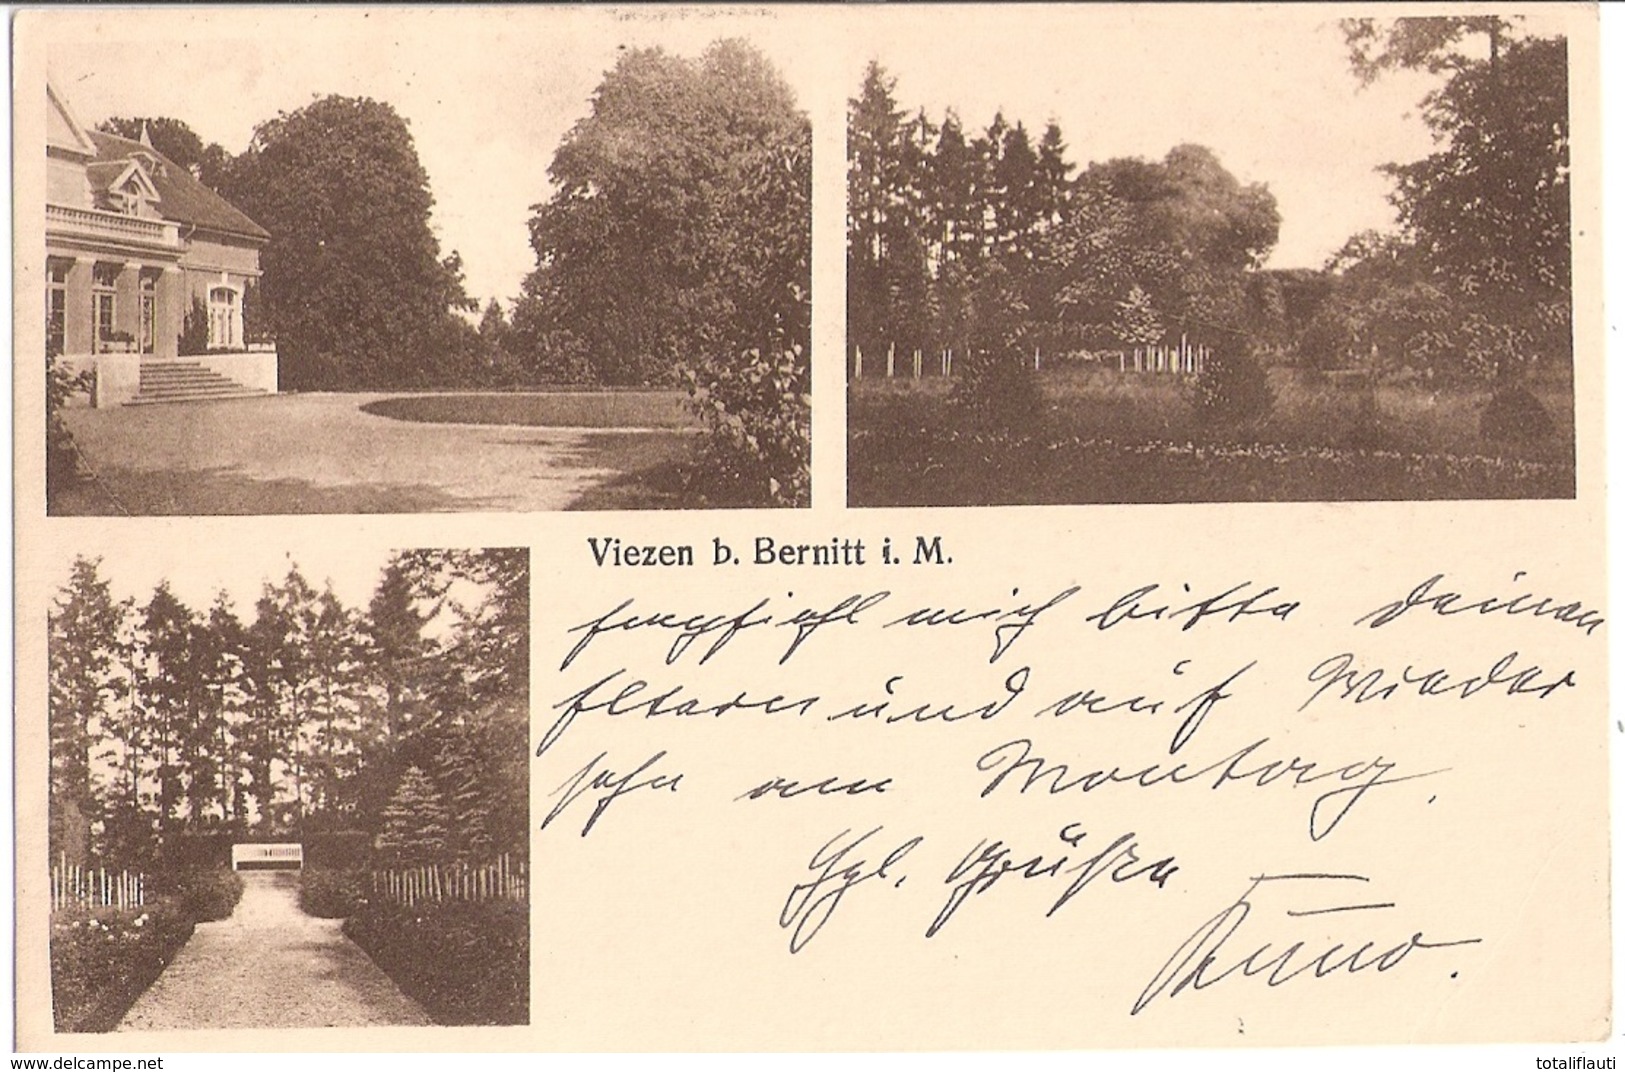 Viezen b. Bernitt i. M.
Empfiehl mich bitte Deinen
Eltern und auf Wieder
sehn am Montag.
Hzl. Grüße
Kuno.
delcampe.net
totaliflauti